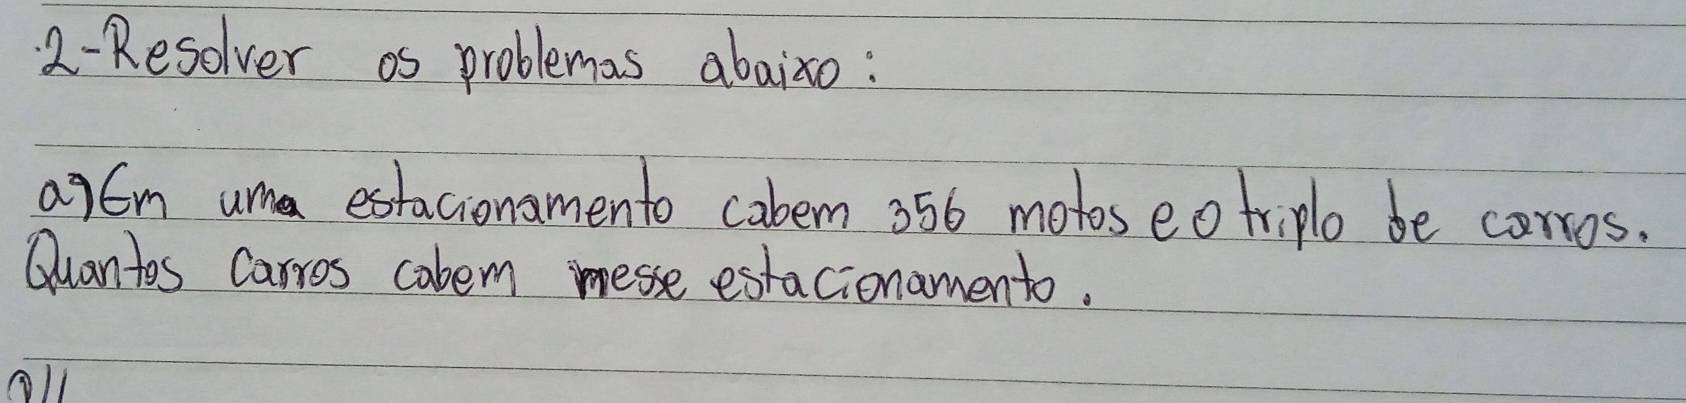 .2-Resolver os problemas abaixo:
a) Em uma estacionamento cabem 356 motos e o triplo de carros.
Quantos carros cabem nesse estacionamento.